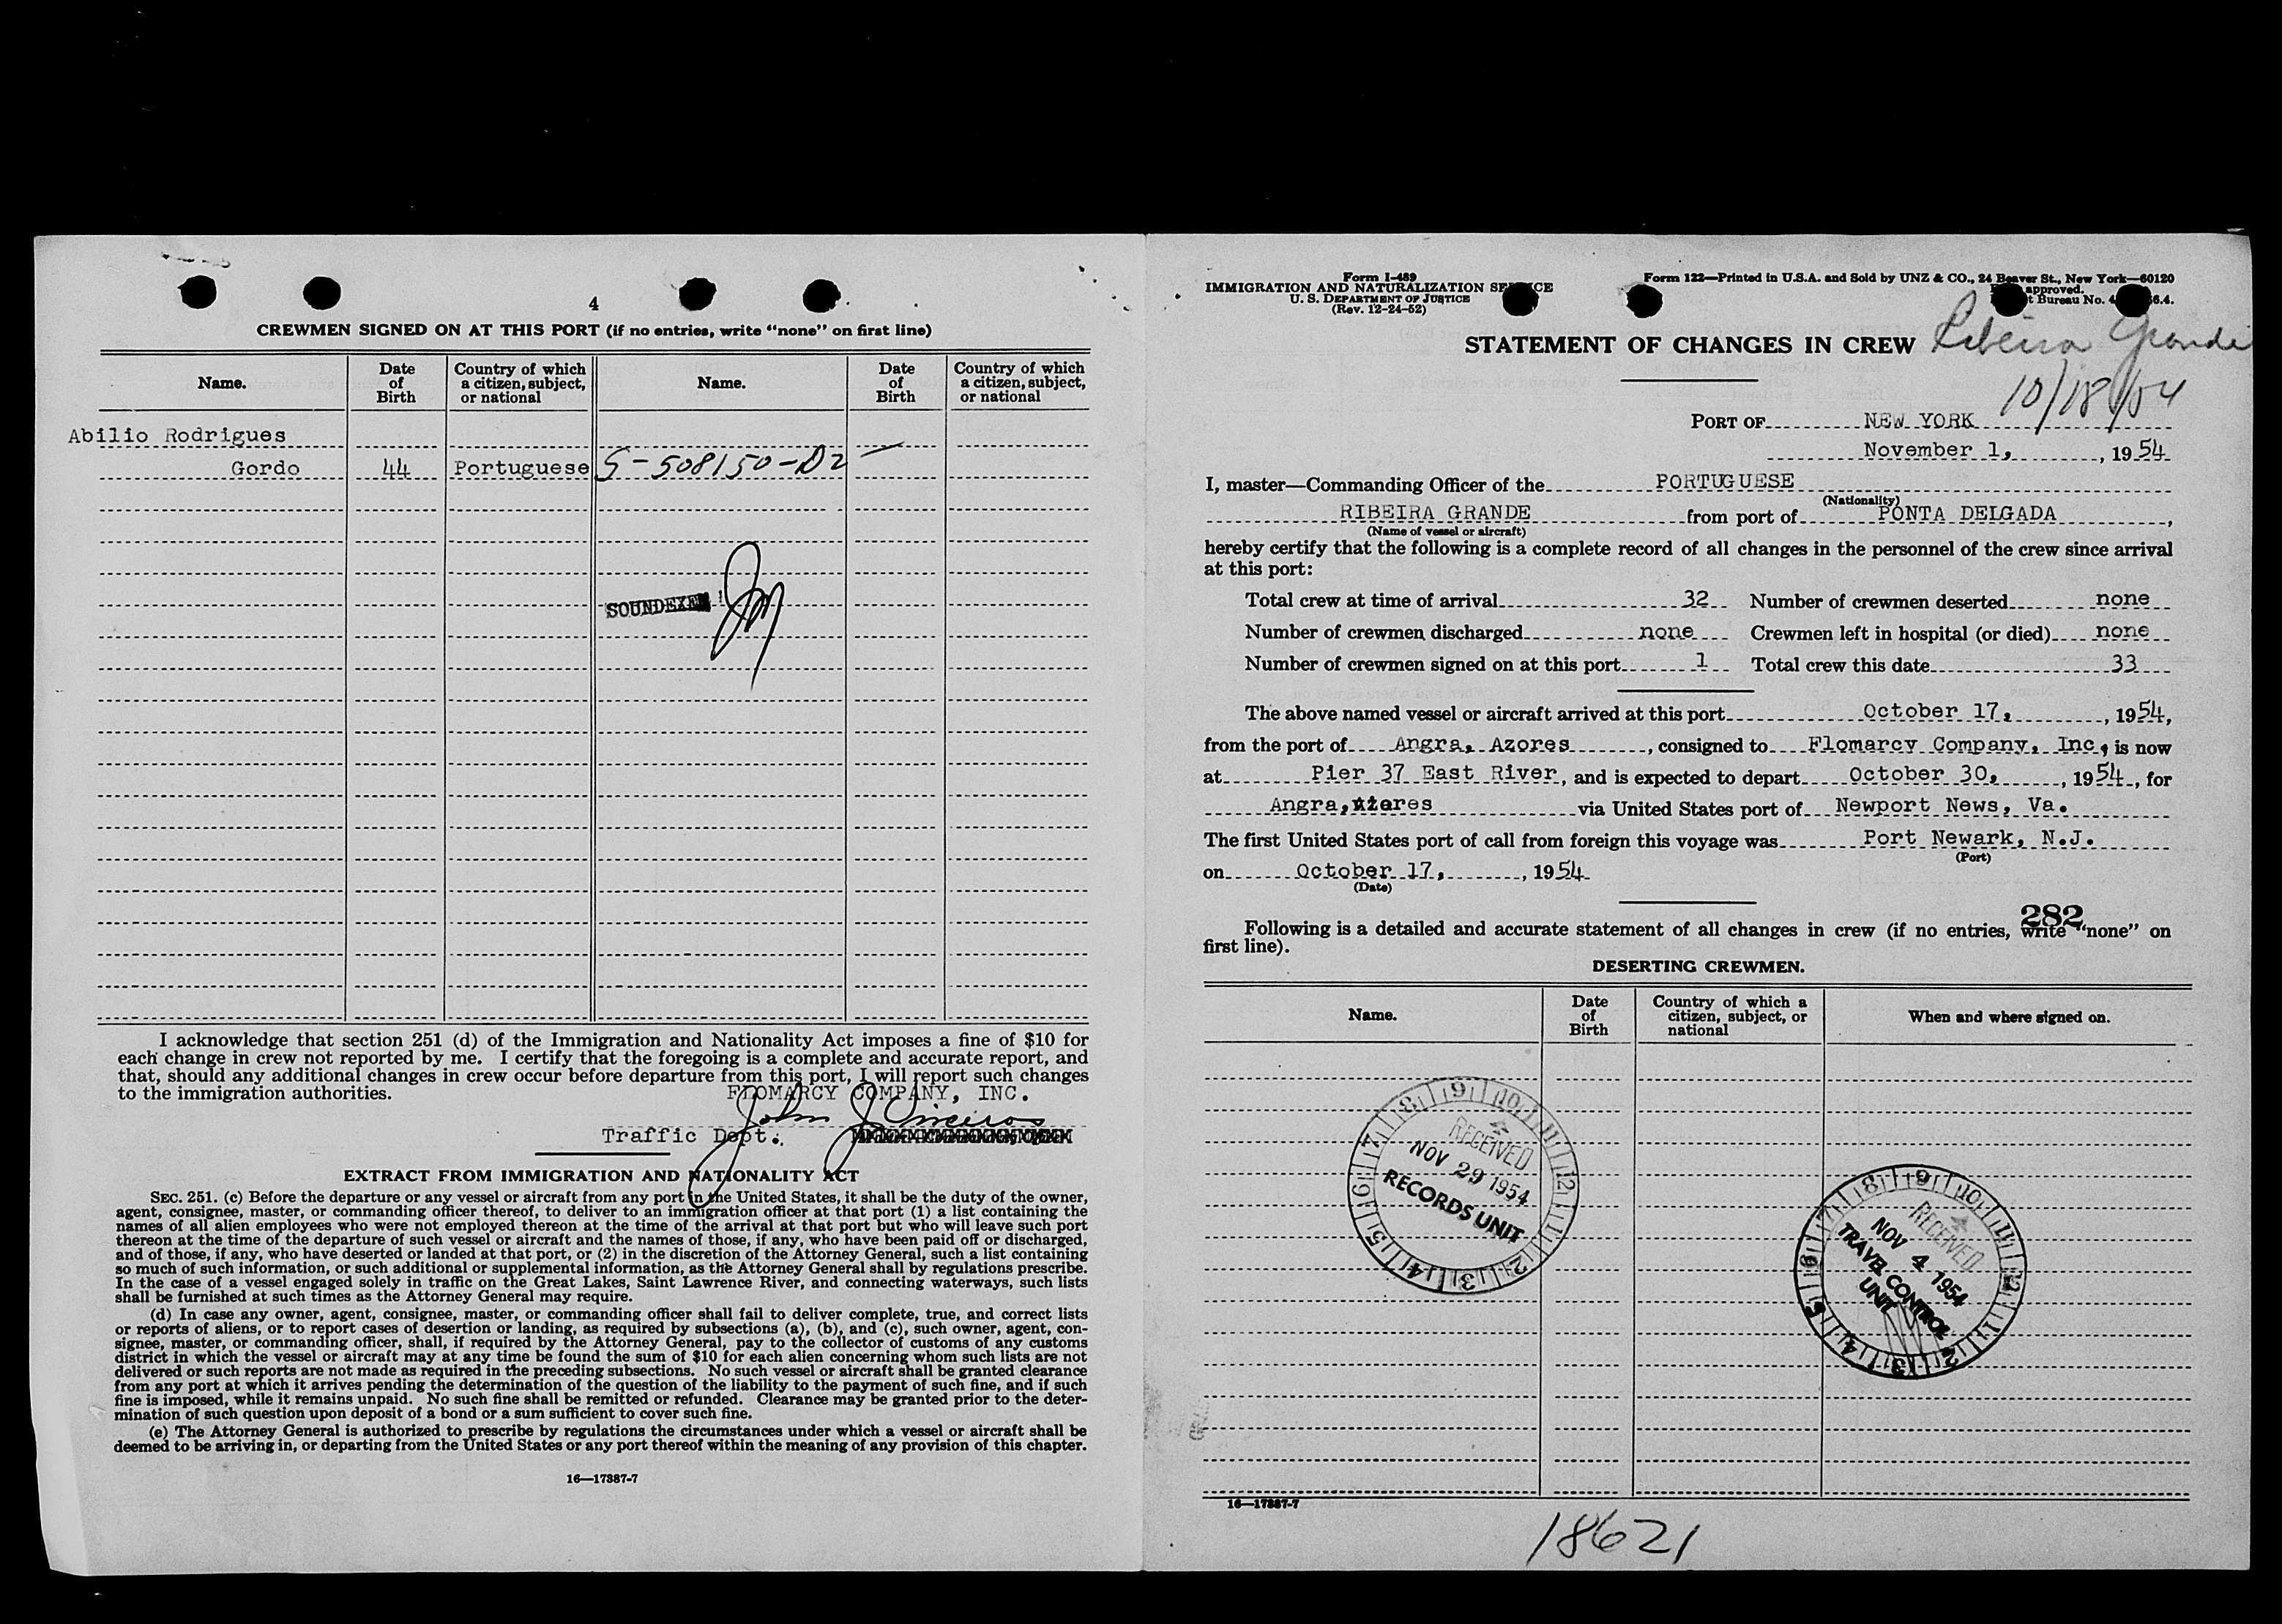 4
CREWMEN SIGNED ON AT THIS PORT (if no entries, write "none" on first line)
Name.
Date
of
Birth
Country of which
a citizen, subject,
or national
Name.
Date
of
Birth
Country of which
a citizen, subject,
or national
Abilio Rodrigues
Gordo 44 Portuguese S-508150-D2 —
SOUNDEXED
I acknowledge that section 251 (d) of the Immigration and Nationality Act imposes a fine of $10 for
each change in crew not reported by me. I certify that the foregoing is a complete and accurate report, and
that, should any additional changes in crew occur before departure from this port, I will report such changes
to the immigration authorities. FLOMARCY COMPANY, INC.
John J.
Traffic Dept.
EXTRACT FROM IMMIGRATION AND NATIONALITY ACT
SEC. 251. (c) Before the departure or any vessel or aircraft from any port in the United States, it shall be the duty of the owner,
agent, consignee, master, or commanding officer thereof, to deliver to an immigration officer at that port (1) a list containing the
names of all alien employees who were not employed thereon at the time of the arrival at that port but who will leave such port
thereon at the time of the departure of such vessel or aircraft and the names of those, if any, who have been paid off or discharged,
and of those, if any, who have deserted or landed at that port, or (2) in the discretion of the Attorney General, such a list containing
so much of such information, or such additional or supplemental information, as the Attorney General shall by regulations prescribe.
In the case of a vessel engaged solely in traffic on the Great Lakes, Saint Lawrence River, and connecting waterways, such lists
shall be furnished at such times as the Attorney General may require.
(d) In case any owner, agent, consignee, master, or commanding officer shall fail to deliver complete, true, and correct lists
or reports of aliens, or to report cases of desertion or landing, as required by subsections (a), (b), and (c), such owner, agent, con-
signee, master, or commanding officer, shall, if required by the Attorney General, pay to the collector of customs of any customs
district in which the vessel or aircraft may at any time be found the sum of $10 for each alien concerning whom such lists are not
delivered or such reports are not made as required in the preceding subsections. No such vessel or aircraft shall be granted clearance
from any port at which it arrives pending the determination of the question of the liability to the payment of such fine, and if such
fine is imposed, while it remains unpaid. No such fine shall be remitted or refunded. Clearance may be granted prior to the deter-
mination of such question upon deposit of a bond or a sum sufficient to cover such fine.
(e) The Attorney General is authorized to prescribe by regulations the circumstances under which a vessel or aircraft shall be
deemed to be arriving in, or departing from the United States or any port thereof within the meaning of any provision of this chapter.
16—17887-7
Form I-489
IMMIGRATION AND NATURALIZATION SERVICE
U. S. DEPARTMENT OF JUSTICE
(Rev. 12-24-52)
Form 122—Printed in U.S.A. and Sold by UNZ & CO., 24 Beaver St., New York—60120
approved.
Bureau No. 4 6.4.
STATEMENT OF CHANGES IN CREW
Ribeira Grande
10/18/54
PORT OF NEW YORK
November 1, , 1954
I, master—Commanding Officer of the PORTUGUESE
(Nationality)
RIBEIRA GRANDE from port of PONTA DELGADA ,
(Name of vessel or aircraft)
hereby certify that the following is a complete record of all changes in the personnel of the crew since arrival
at this port:
Total crew at time of arrival 32 Number of crewmen deserted none
Number of crewmen discharged none Crewmen left in hospital (or died) none
Number of crewmen signed on at this port 1 Total crew this date 33
The above named vessel or aircraft arrived at this port October 17, , 1954,
from the port of Angra, Azores , consigned to Flomarcy Company, Inc, is now
at Pier 37 East River, and is expected to depart October 30, , 1954, for
Angra,Azores via United States port of Newport News, Va.
The first United States port of call from foreign this voyage was Port Newark, N.J.
(Port)
on October 17, , 1954
(Date)
282
Following is a detailed and accurate statement of all changes in crew (if no entries, write "none" on
first line).
DESERTING CREWMEN.
Name.
Date
of
Birth
Country of which a
citizen, subject, or
national
When and where signed on.
RECEIVED
NOV 29 1954
RECORDS UNIT
RECEIVED
NOV 4 1954
TRAVEL CONTROL
UNIT
16—17887-7
18621